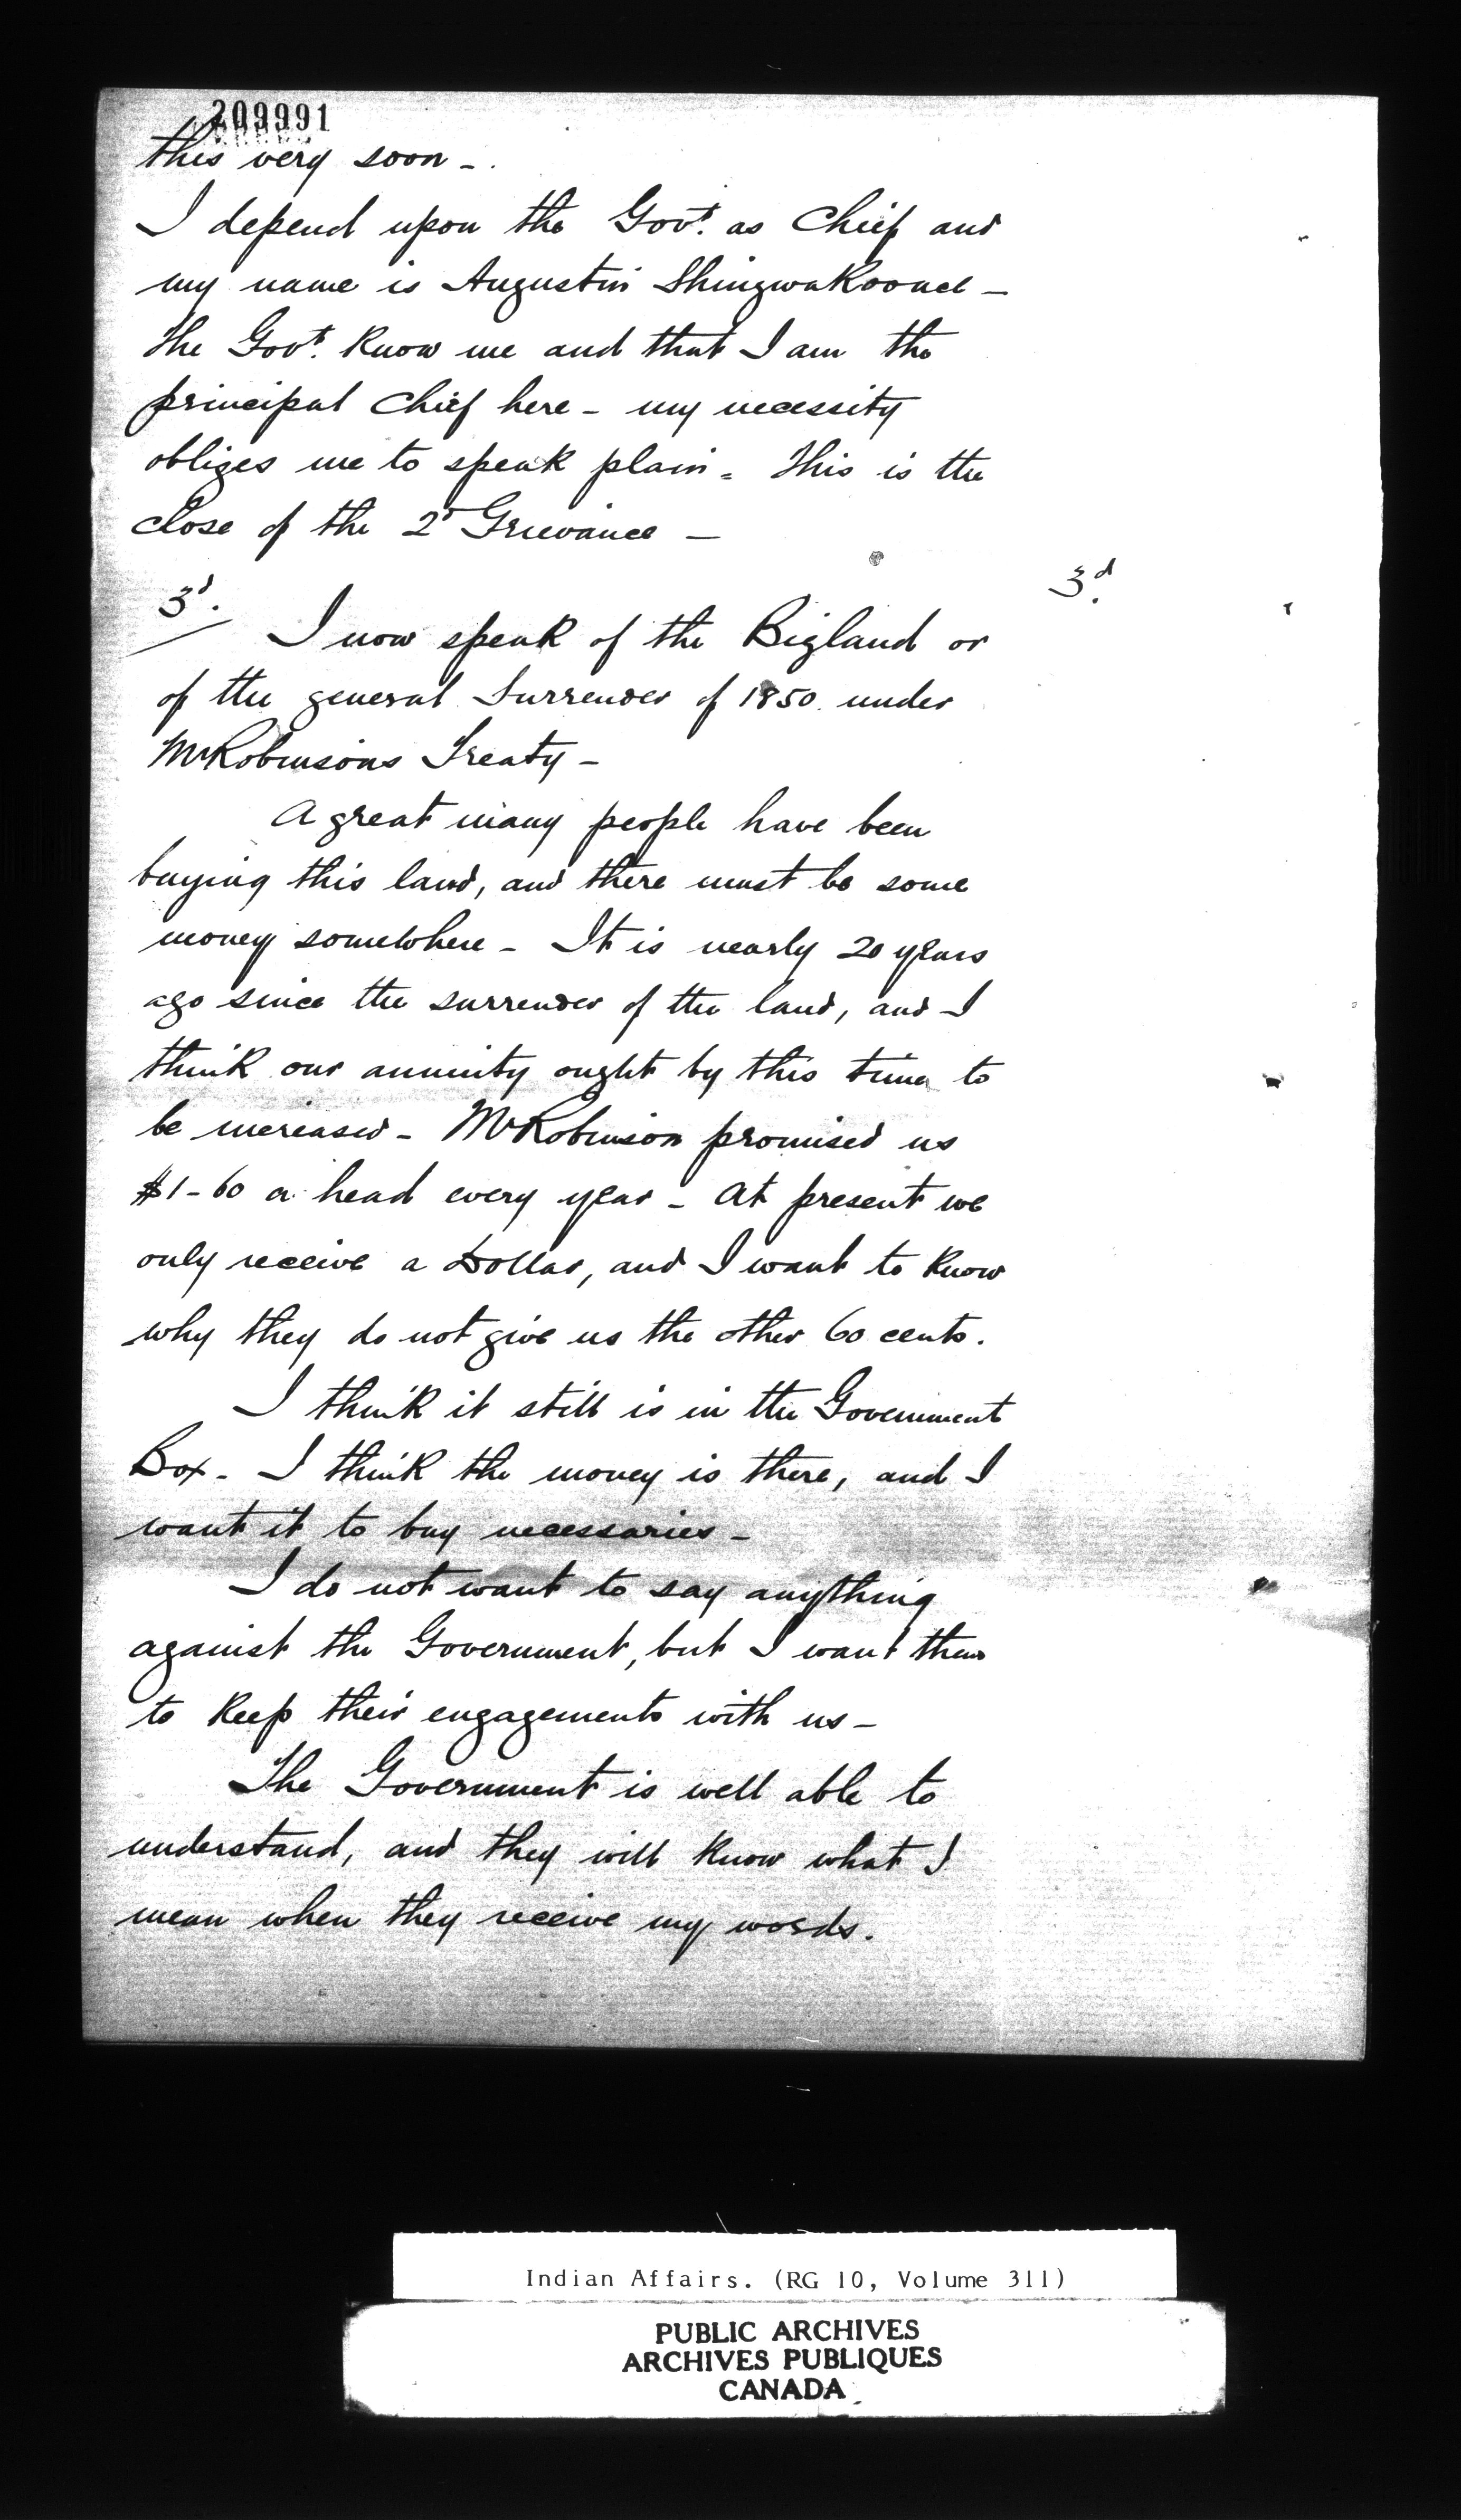 209991
this very soon -
I depend upon the Govt. as Chief and
my name is Augustin Shingwakoonce -
The Govt. Know me and that I am the
principal Chief here - my necessity
obliges me to speak plain = This is the
close of the 2d Grievance -
3d.
3d.
I now speak of the Bigland or
of the general Surrender of 1850 under
Mr Robinsons Treaty -
A great many people have been
buying this land, and there must be some
money somewhere - It is nearly 20 years
ago since the surrender of the land, and I
think our annuity ought by this time to
be increased - Mr Robinson promised us
$1-60 a head every year - At present we
only receive a Dollar, and I want to Know
why they do not give us the other 60 cents.
I think it still is in the Government
Box - I think the money is there, and I
want it to buy necessaries -
I do not want to say anything
against the Government, but I want them
to Keep their engagements with us -
The Government is well able to
understand, and they will Know what I
mean when they receive my words.
Indian Affairs. (RG 10, Volume 311)
PUBLIC ARCHIVES
ARCHIVES PUBLIQUES
CANADA